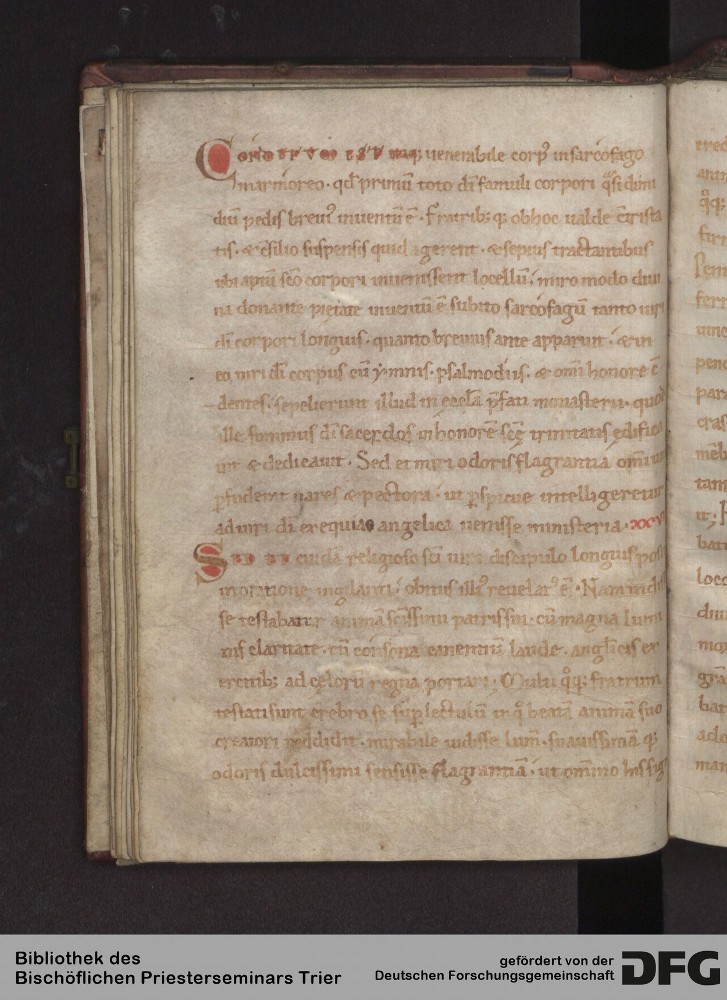 Conditum est deniq; uenerabile corp᷒ in sarcofago
marmoreo · qd̄ primū toto dī famuli corpori q̄si dimi
diū pedis breui᷒ inuentū ē · Fratrib; q; ob hoc ualde c̄trista
tis · & c̄silio suspensis quid agerent · & sepius tractantibus
ubi aptū sc̄o corpori inuenissent locellū · miro modo diui
na donante pietate inuentū ē subito sarcofagū tanto uiri
dī corpori longius · quanto breuius ante apparuit · & in
eo uiri dī corpus cū ymnis · psalmodiis · & om̄i honore c̄
dentes · sepelierunt illud in eccl̄a p̄fati monasterii · quod
ille summus dī sacerdos in honorē sc̄e trinitatis ędifica
uit & dedicauit · Sed et miri odoris flagrantia om̄iū
p̄fuderat nares & pectora · ut p̄spicue intellegeretur
ad uiri dī exequias angelica uenisse ministeria · xxv
Sed cuidā religioso sc̄i uiri discipulo longius
in oratione uigilanti · obitus illi᷒ reuelat᷒ ē · Nam
se testabatur animā sc̄issimi patris sui · cū magna lumi
nis claritate · cū consona canentiū laude · angelicis ex
ercitib; ad celorū regna portari · Multi q̊q; fratrum
testati sunt crebro se sup̄ lectulū in q̊ beatā animā suo
creatori reddidit · mirabile uidisse lum̄ · suauissimā q;
odoris dulcissimi sensisse flagrantiā · ut omnino his
Bibliothek des
Bischöflichen Priesterseminars Trier
gefördert von der
Deutschen Forschungsgemeinschaft
DFG